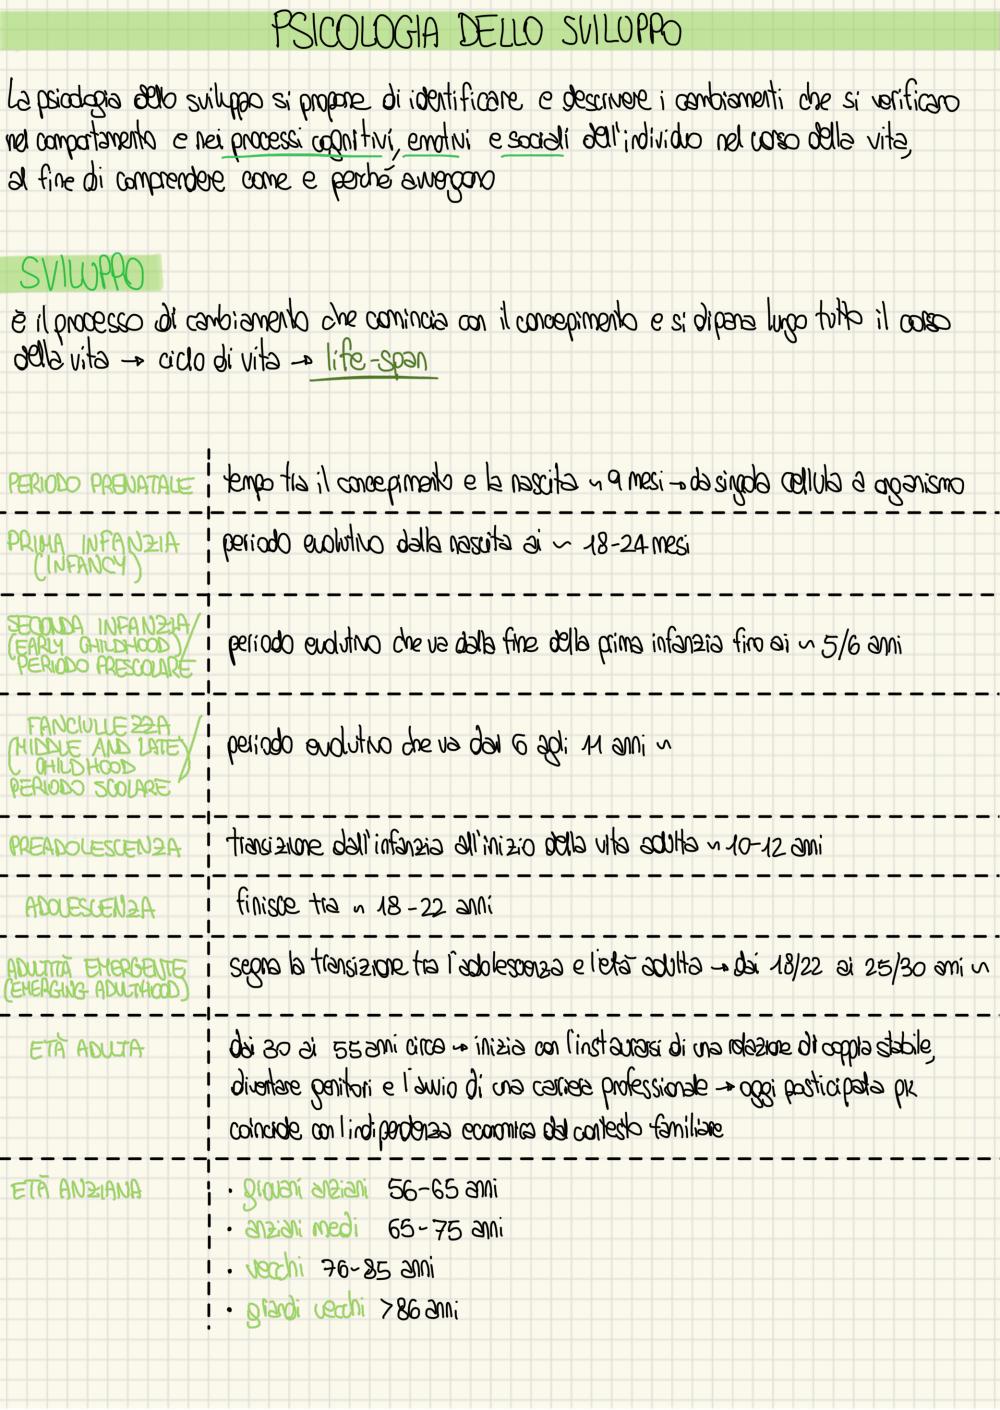 PSICOLOGIA DELLO SVILUPPO
La psicologia dello sviluppo si propone di identificare e descrivere i cambiamenti che si verificano
nel comportamento e nei processi cognitivi, emotivi e sociali dell'individuo nel corso della vita,
al fine di comprendere come e perché avvengono
SVILUPPO
è il processo di cambiamento che comincia con il concepimento e si dipana lungo tutto il corso
della vita → ciclo di vita → life-span
PERIODO PRENATALE tempo tra il concepimento e la nascita ~ 9 mesi → da singola cellula a organismo
PRIMA INFANZIA
(INFANCY)
periodo evolutivo dalla nascita ai ~ 18-24 mesi
SECONDA INFANZIA/
(EARLY CHILDHOOD)
PERIODO PRESCOLARE
periodo evolutivo che va dalla fine della prima infanzia fino ai ~ 5/6 anni
FANCIULLEZZA/
(MIDDLE AND LATE
CHILDHOOD)
PERIODO SCOLARE
periodo evolutivo che va dai 6 agli 11 anni ~
PREADOLESCENZA transizione dall'infanzia all'inizio della vita adulta ~ 10-12 anni
ADOLESCENZA finisce tra ~ 18-22 anni
ADULTITÀ EMERGENTE
(EMERGING ADULTHOOD)
segna la transizione tra l'adolescenza e l'età adulta → dai 18/22 ai 25/30 anni ~
ETÀ ADULTA dai 30 ai 55 anni circa → inizia con l'instaurarsi di una relazione di coppia stabile,
diventare genitori e l'avvio di una carriera professionale → oggi posticipata pk
coincide con l'indipendenza economica dal contesto familiare
ETÀ ANZIANA • giovani anziani 56-65 anni
• anziani medi 65-75 anni
• vecchi 76-85 anni
• grandi vecchi >86 anni